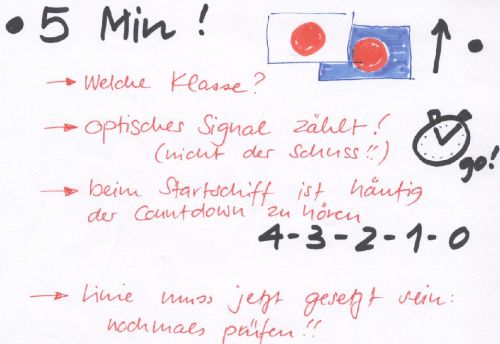 • 5 Min! ↑ •
→ Welche Klasse?
→ optisches Signal zählt!
(nicht der Schuss!!)
go!
→ beim Startschiff ist häufig
der Countdown zu hören
4-3-2-1-0
→ Linie muss jetzt gesetzt sein:
nochmals prüfen!!